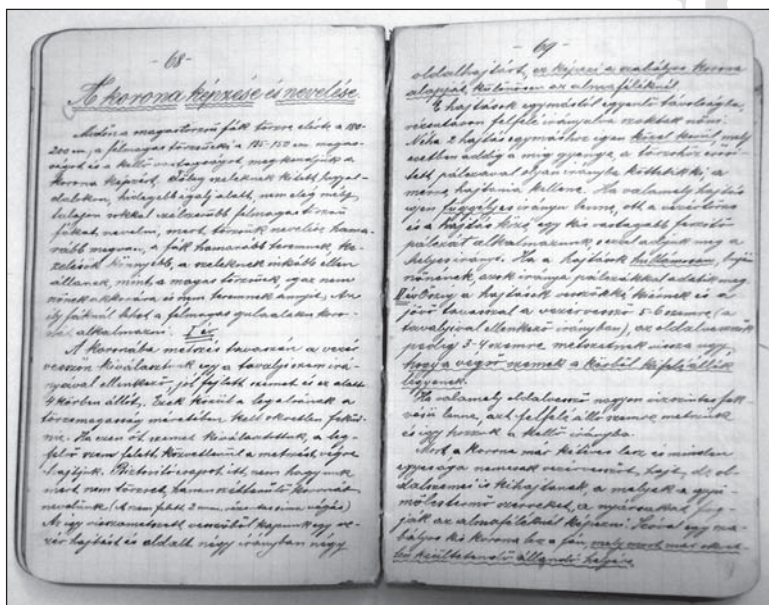 -68-
A korona képzése és nevelése.
Amikor a magastörzsű fák törzse elérte a 180-
200 cm, a félmagas törzsűeké a 135-150 cm magas-
ságot és a kellő vastagságot, megkezdjük a
korona képzést. Főleg szeleknek kitett hegyol-
dalokon, hidegebb égalj alatt, nem elég mély
talajon sokkal célszerűbb félmagas törzsű
fákat nevelni, mert törzsük nevelése hama-
rább megvan, a fák hamarább teremnek, ke-
zelésük könnyebb, a szeleknek inkább ellen
állanak, mint a magas törzsűek, igaz nem
nőnek akkorára és nem teremnek annyit. Az
ily fáknál lehet a félmagas gula alakú koro-
nát alkalmazni. I év
A koronába metszés tavaszán a vezér
vesszőn kiválasztunk egy a tavalyi szem irá-
nyával ellenkező, jól fejlett szemet és ez alatt
4 körben állót. Ezek közül a legalsónak a
törzsmagasság méretében kell okvetlen feküd-
nie. Ha ezen öt szemet kiválasztottuk, a leg-
felső szem felett közvetlenül a metszést végre
hajtjuk. Biztosító csapot itt nem hagyunk
mert nem törzset, hanem szétterülő koronát
nevelünk. (A szem felett 2 m.m. vízszintes sima vágás)
Az így visszametszett vesszőből kapunk egy ve-
zér hajtást és oldalt négy irányban négy
-69-
oldalhajtást, ez képezi a szabályos korona
alapját, különösen az almaféléknél.
E hajtások egymástól egyenlő távolságba,
vízszintesen felfelé irányulva szoktak nőni.
Néha 2 hajtás egymáshoz igen közel kerül, mely
esetben addig a míg gyenge, a törzshöz erősí-
tett pálcával olyan irányba köttetik ki, a
merre hajtania kellene. Ha valamely hajtás
igen függélyes irányú lenne, ott a vezértörzs
és a hajtás közé, egy kis vastagabb feszítő
pálcát alkalmazunk, s ezzel adjuk meg a
helyes irányt. Ha a hajtások hullámosan,
nőnének, azok iránya pálcákkal adatik meg.
II év Őszig a hajtások vesszőkké érnek és a
jövő tavasszal a vezérvessző 5-6 szemre (a
tavalyival ellenkező irányban), az oldalvesszők
pedig 3-4 szemre metszetnek vissza úgy,
hogy a végső szemek a körből kifelé állók
legyenek.
Ha valamely oldalvessző nagyon vízszintes fek-
vésű lenne, azt felfelé álló szemre metsszük
és így hozzuk a kellő irányba.
Most a korona már kétéves lesz és minden
egyes ága nemcsak vezérvesszőt hajt, de ol-
dalszemei is kihajtanak, a melyek a gyü-
mölcstermő szerveket, a nyársakat fog-
ják az almaféléknél képezni. Szóval egy sza-
bályos kis korona lesz a fán, mely most már okvet-
len kiültetendő állandó helyére.